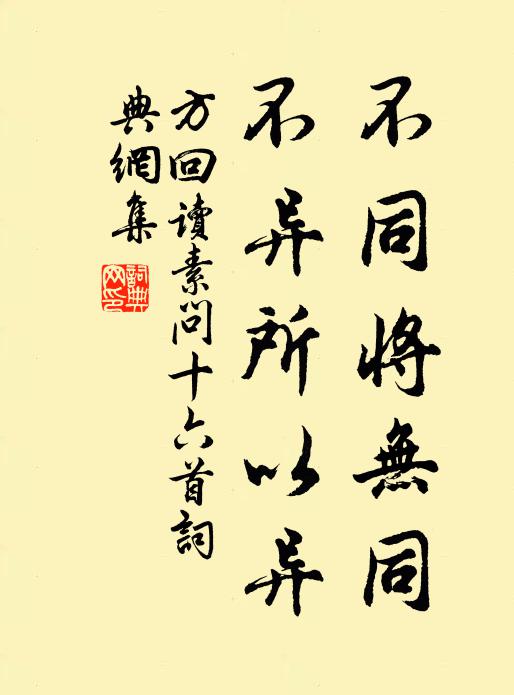 不同将無同
不异所以异
方回讀素問十六首詞
典網集
詞典
网印